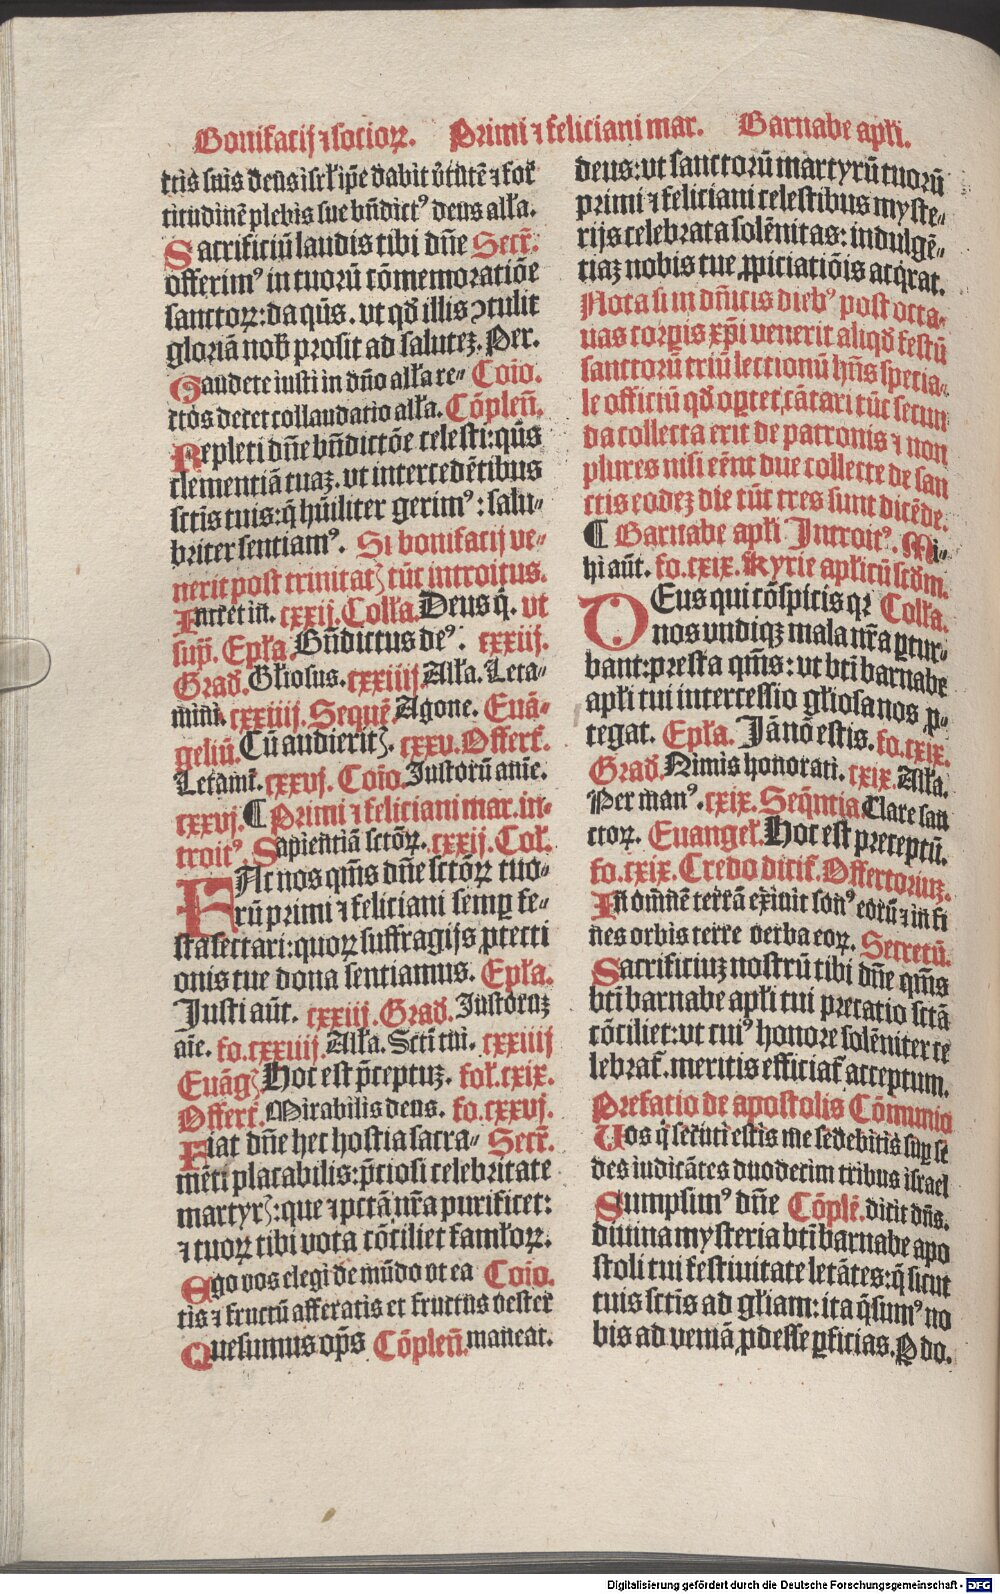 Bonifacij ⁊ socioꝝ. Primi ⁊ feliciani mar. Barnabe apłi.
ctis suis deus isrł ip̄e dabit v̉tutē ⁊ for
titudinē plebis sue bn̄dictꝰ deus alła.
Sacrificiū laudis tibi dn̄e Secr̄.
offerimꝰ in tuorū cōmemoratiōe
sanctoꝝ: da qs̄. vt qđ illis ↄtulit
gloriā nob̄ prosit ad saluteꝫ. Per.
Gaudete iusti in dn̄o alła re- Coīo.
ctos decet collaudatio alła. Cōplen̄.
Repleti dn̄e bn̄dictōe celesti: qs̄
clementiā tuaꝫ. vt intercedētibus
sctīs tuis: q̄ hūiliter gerimꝰ: salu-
briter sentiamꝰ. Si bonifacij ve-
nerit post trinitatꝭ tūc introitus.
Intret in. cxxij. Colła. Deus q̄. vt
sup̄. Epła. Bn̄dictus deꝰ: cxxiij.
Grad̄. Głiosus. cxxiiij Alła. Leta-
mini. cxxiiij. Sequē. Agone. Euā-
geliū. Cū audieritꝭ. cxxv. Offert̄.
Letamī. cxxvj. Coīo. Iustorū anīe.
cxxvj. ¶ Primi ⁊ feliciani mar. in-
troitꝰ. Sapientiā sctōꝝ. cxxij. Coł.
FAc nos qm̄s dn̄e sctōꝝ tuo-
rū primi ⁊ feliciani semꝑ fe-
sta sectari: quoꝝ suffragijs ꝓtecti
onis tue dona sentiamus. Epła.
Iusti aūt. cxxiij. Grad̄. Iustoruꝫ
aīe. fo. cxxiiij. Alła. Sctī tui. cxxiiij
Euāgꝭ Hoc est p̄ceptuꝫ. foł. cxix.
Offert̄. Mirabilis deus. fo. cxxvj.
Fiat dn̄e hec hostia sacra- Secr̄.
mēti placabilis: p̄ciosi celebritate
martyrꝭ: que ⁊ pctā nr̄a purificet:
⁊ tuoꝝ tibi vota cōciliet famłoꝝ.
Ego vos elegi de mūdo vt ea Coīo.
tis ⁊ fructū afferatis et fructus vester
Quesumus op̄s Cōplen̄. maneat.
deus: vt sanctorū martyrū tuorū
primi ⁊ feliciani celestibus myste-
rijs celebrata solēnitas: indulgē-
tiaꝫ nobis tue ꝓpiciatiōis acq̄rat.
Nota si in dn̄icis diebꝰ post octa-
uas corꝑis xp̄i venerit aliqđ festū
sanctorū triū lectionū hn̄s specia-
le officiū qđ oꝑtet cātari tūc secun
da collecta erit de patronis ⁊ non
plures nisi eēnt due collecte de san
ctis eodeꝫ die tūc tres sunt dicēde.
¶ Barnabe apłi Introitꝰ. Mi-
hi aūt. fo. cxix. Kyrie aplicū scđm.
DEus qui cōspicis qꝛ Colła.
nos vndiqꝫ mala nr̄a ꝑtur-
bant: presta qm̄s: vt btī barnabe
apłi tui intercessio głiosa nos ꝓ-
tegat. Epła. Iā nō estis. fo. cxix.
Grad̄. Nimis honorati. cxix. Alła.
Per manꝰ. cxix. Seq̄ntia Clare san
ctoꝝ. Euangeł. Hoc est preceptū.
fo. cxix. Credo dicit̄. Offertoriuꝫ.
In omnē terrā exiuit sonꝰ eorū ⁊ in fi
nes orbis terre verba eoꝝ. Secretū.
Sacrificiuꝫ nostrū tibi dn̄e qm̄s
btī barnabe apłi tui precatio sctā
cōciliet: vt cuiꝰ honore solēniter ce
lebrat̄. meritis efficiat̄ acceptum.
Prefatio de apostolis Cōmunio
Uos q̄ secuti estis me sedebitis suꝑ se
des iudicātes duodecim tribus israel
Sumpsimꝰ dn̄e Cōplē. dicit dn̄s.
diuina mysteria btī barnabe apo
stoli tui festiuitate letātes: q̄ sicut
tuis sctīs ad głiam: ita q̄sumꝰ no
bis ad veniā ꝓdesse ꝑficias. P do.
Digitalisierung gefördert durch die Deutsche Forschungsgemeinschaft - DFG